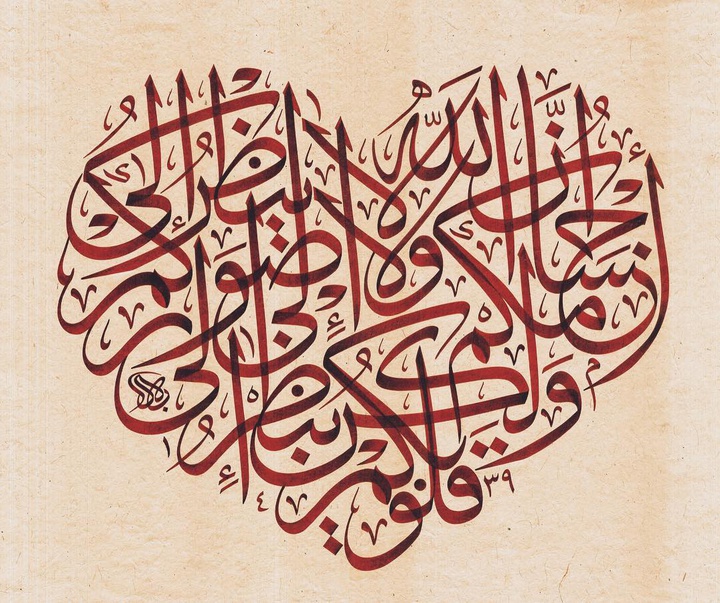 إنّ الله لا ينظر إلى
أجسامكم ولا إلى صوركم
ولكن ينظر إلى
قلوبكم
١٤٣٩